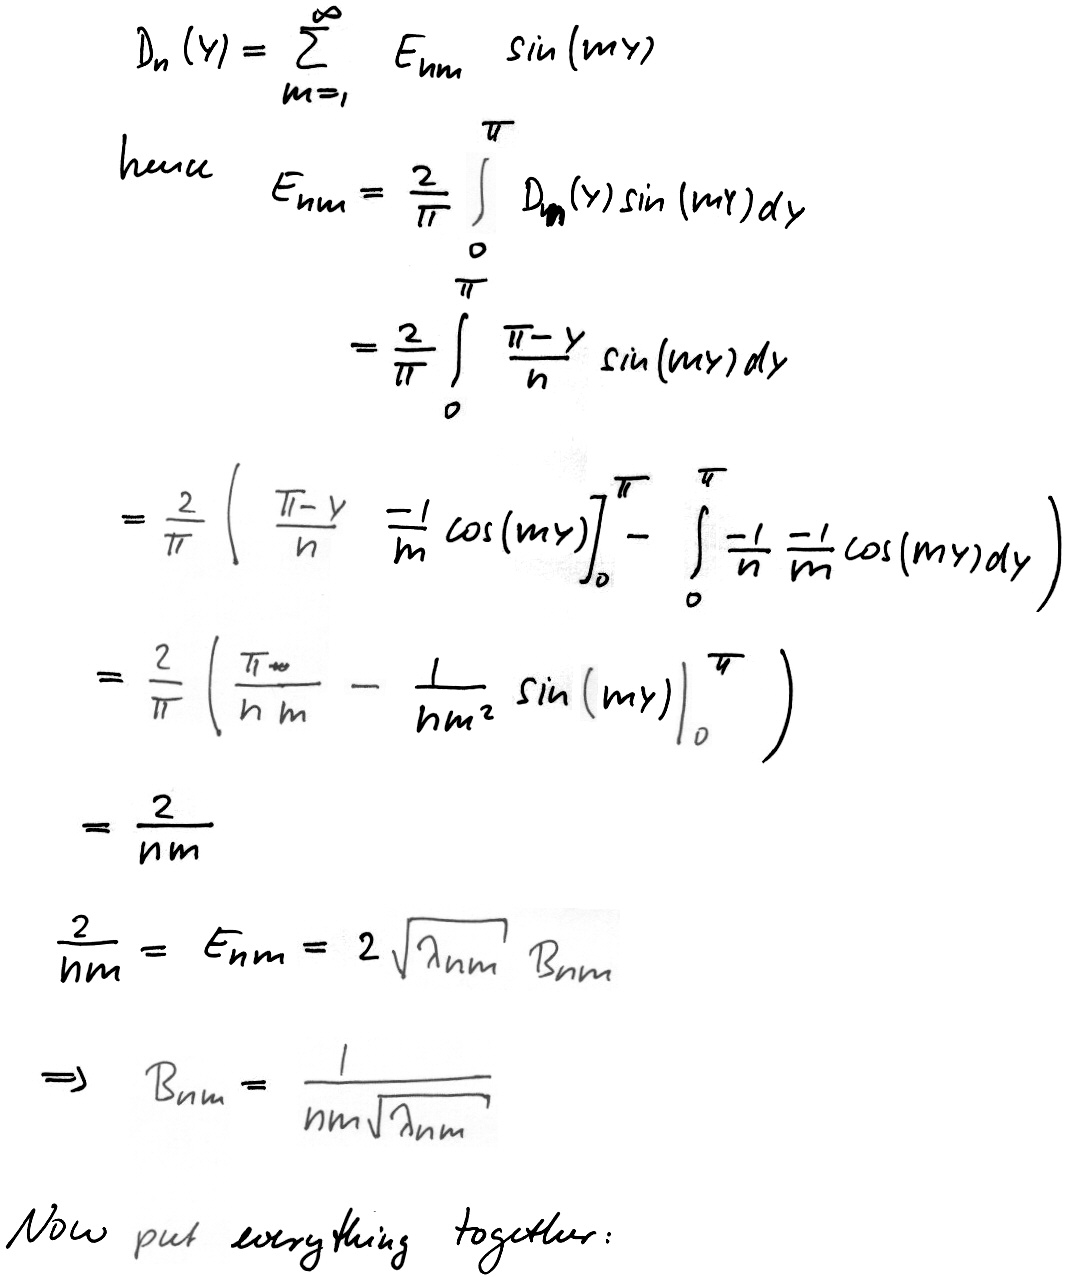 D_n(y) = \sum_{m=1}^{\infty} E_{nm} sin(my)
hence E_{nm} = \frac{2}{\pi} \int_0^{\pi} D_n(y) sin(my) dy
= \frac{2}{\pi} \int_0^{\pi} \frac{\pi-y}{n} sin(my) dy
= \frac{2}{\pi} ( \frac{\pi-y}{n} \frac{-1}{m} cos(my) ]_0^{\pi} - \int_0^{\pi} \frac{-1}{n} \frac{-1}{m} cos(my) dy )
= \frac{2}{\pi} ( \frac{\pi}{nm} - \frac{1}{nm^2} sin(my) |_0^{\pi} )
= \frac{2}{nm}
\frac{2}{nm} = E_{nm} = 2 \sqrt{\lambda_{nm}} B_{nm}
⇒ B_{nm} = \frac{1}{nm \sqrt{\lambda_{nm}}}
Now put everything together: